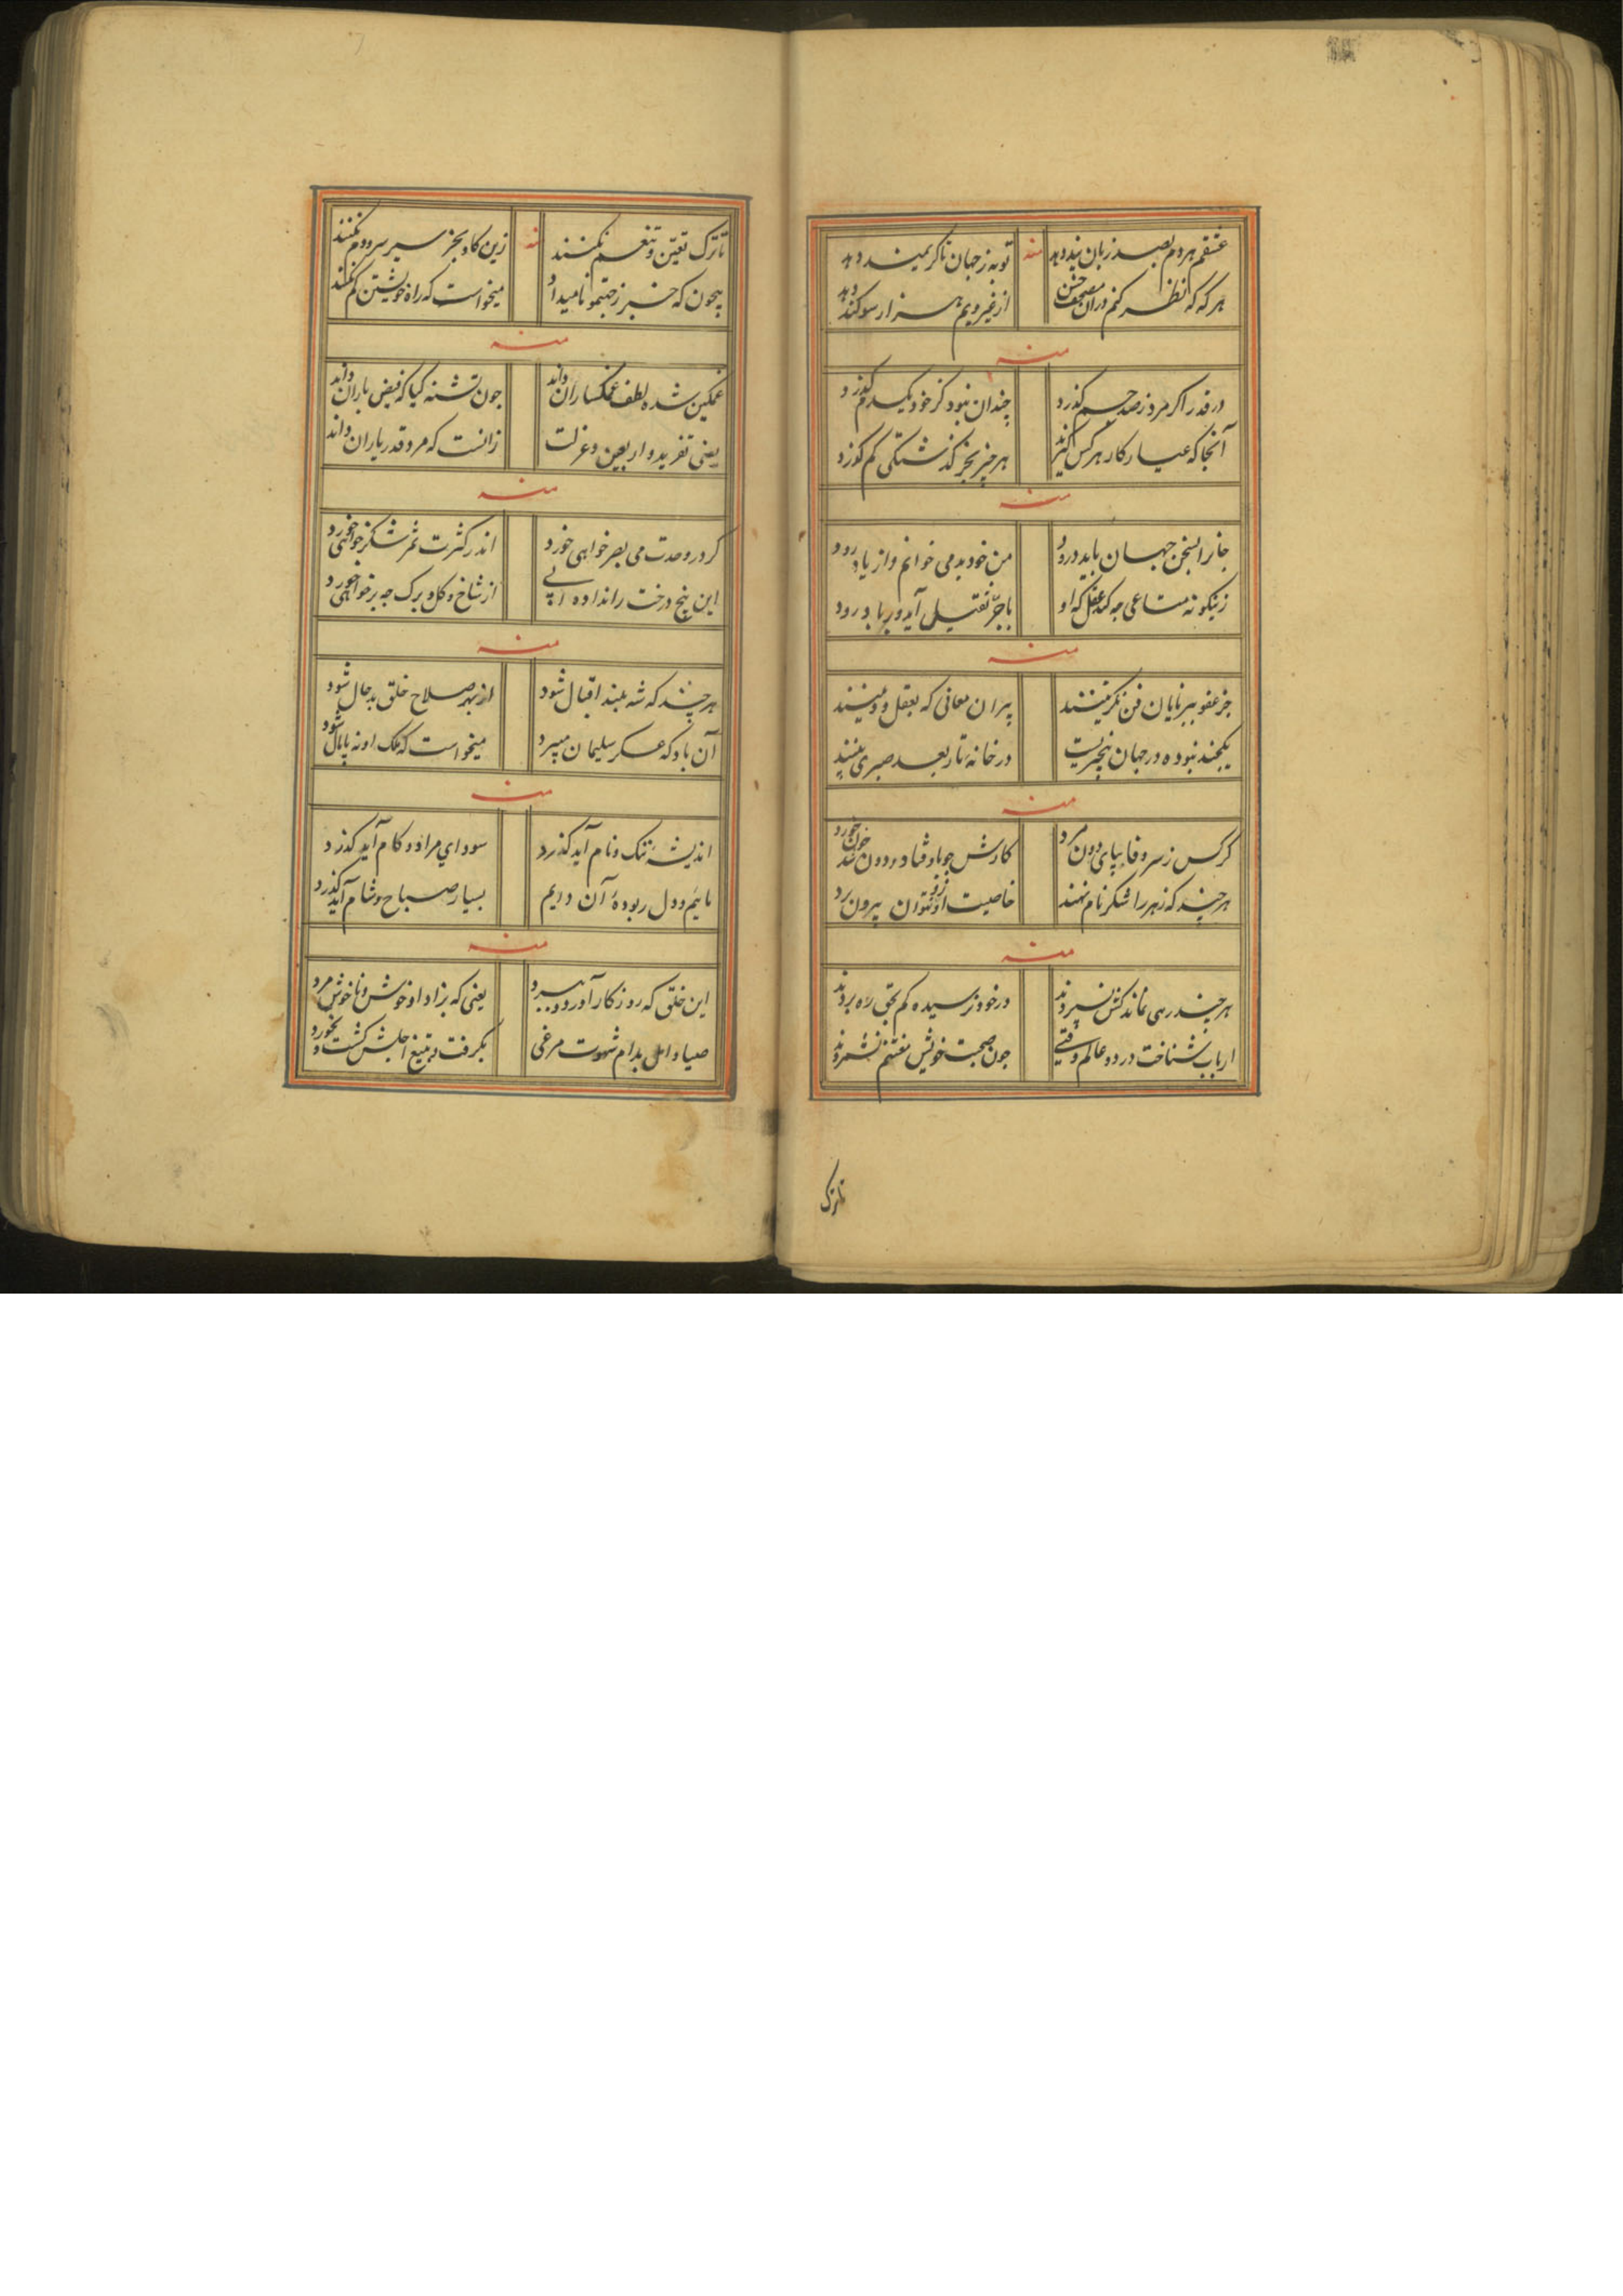 عشقم هر دم بصد زبان پند دهد منه توبه ز جهان ناکریمند دهد
هر که که نظر کنم در آن مصحف حسن از غیر ویم هزار سوکند دهد
منه
در قدر اکر مرد ز صد جم کذرد چندان نبود کز خود یکدم کذرد
آنجا که عیار کار هر کس کیرند هر چیز بجز کذشتکی کم کوزد
منه
جانرا بسخن جهان باید درود من خود بد می خوانم و از یاد رود
زینکونه متاعی چه کند عقل که او با جر ثقیل آید و بر باد رود
منه
جز عفو ببرنایان فن نکزینند پیران معانی که بعقل و دینند
یکچند نبوده در جهان چیزیست در خانه تار بعد صبری بینند
منه
کرکس ز سر وفا بپای دون مرد کارش چو باوفتاد دون خون خورد
هر چند که زهر را شکر نام نهند خاصیت او ازو نتوان بیرون برد
منه
هر چند رهی نماند کش نسپردند در خود نرسیده کم بحق ره بردند
ارباب شناخت در دو عالم وقتی چون صحبت خویش مغتنم نشمردند
تا ترک
تا ترک تعین و تنعم نکنند منه زین کاو بجز سیر سر و دم نکنند
بیچون که خبر ز جنتم و نامیداد میخواست که راه خویشتن کم نکنند
منه
غمکین شده لطف غمکساران داند چون تشنه کیا که فیض باران داند
یعنی تفرید و اربعین و عزلت زانست که مرد قدر یاران داند
منه
کر در وحدت می بصر خواهی خورد اندر کثرت ثمر شکر خواهی خورد
این بیخ درخت را نداده آبی از شاخ و کل و برک چه بر خواهی خورد
منه
هر چند که شه بلند اقبال شود از بهر صلاح خلق بد حال شود
آن باد که عسکر سلیمان میبرد میخواست که ملک او نه پامال شود
منه
اندیشه ننک و نام آید کذرد سودای مراد و کام آید کذرد
مائیم و دل ربوده آن دایم بسیار صباح و شام آید کذرد
منه
این خلق که روزکار آورد و ببرد یعنی که بزاد او خوش و ناخوش مرد
صیاد امل بدام شهوت مرغی بکرفت و بتیغ اجلش کشت و بخورد